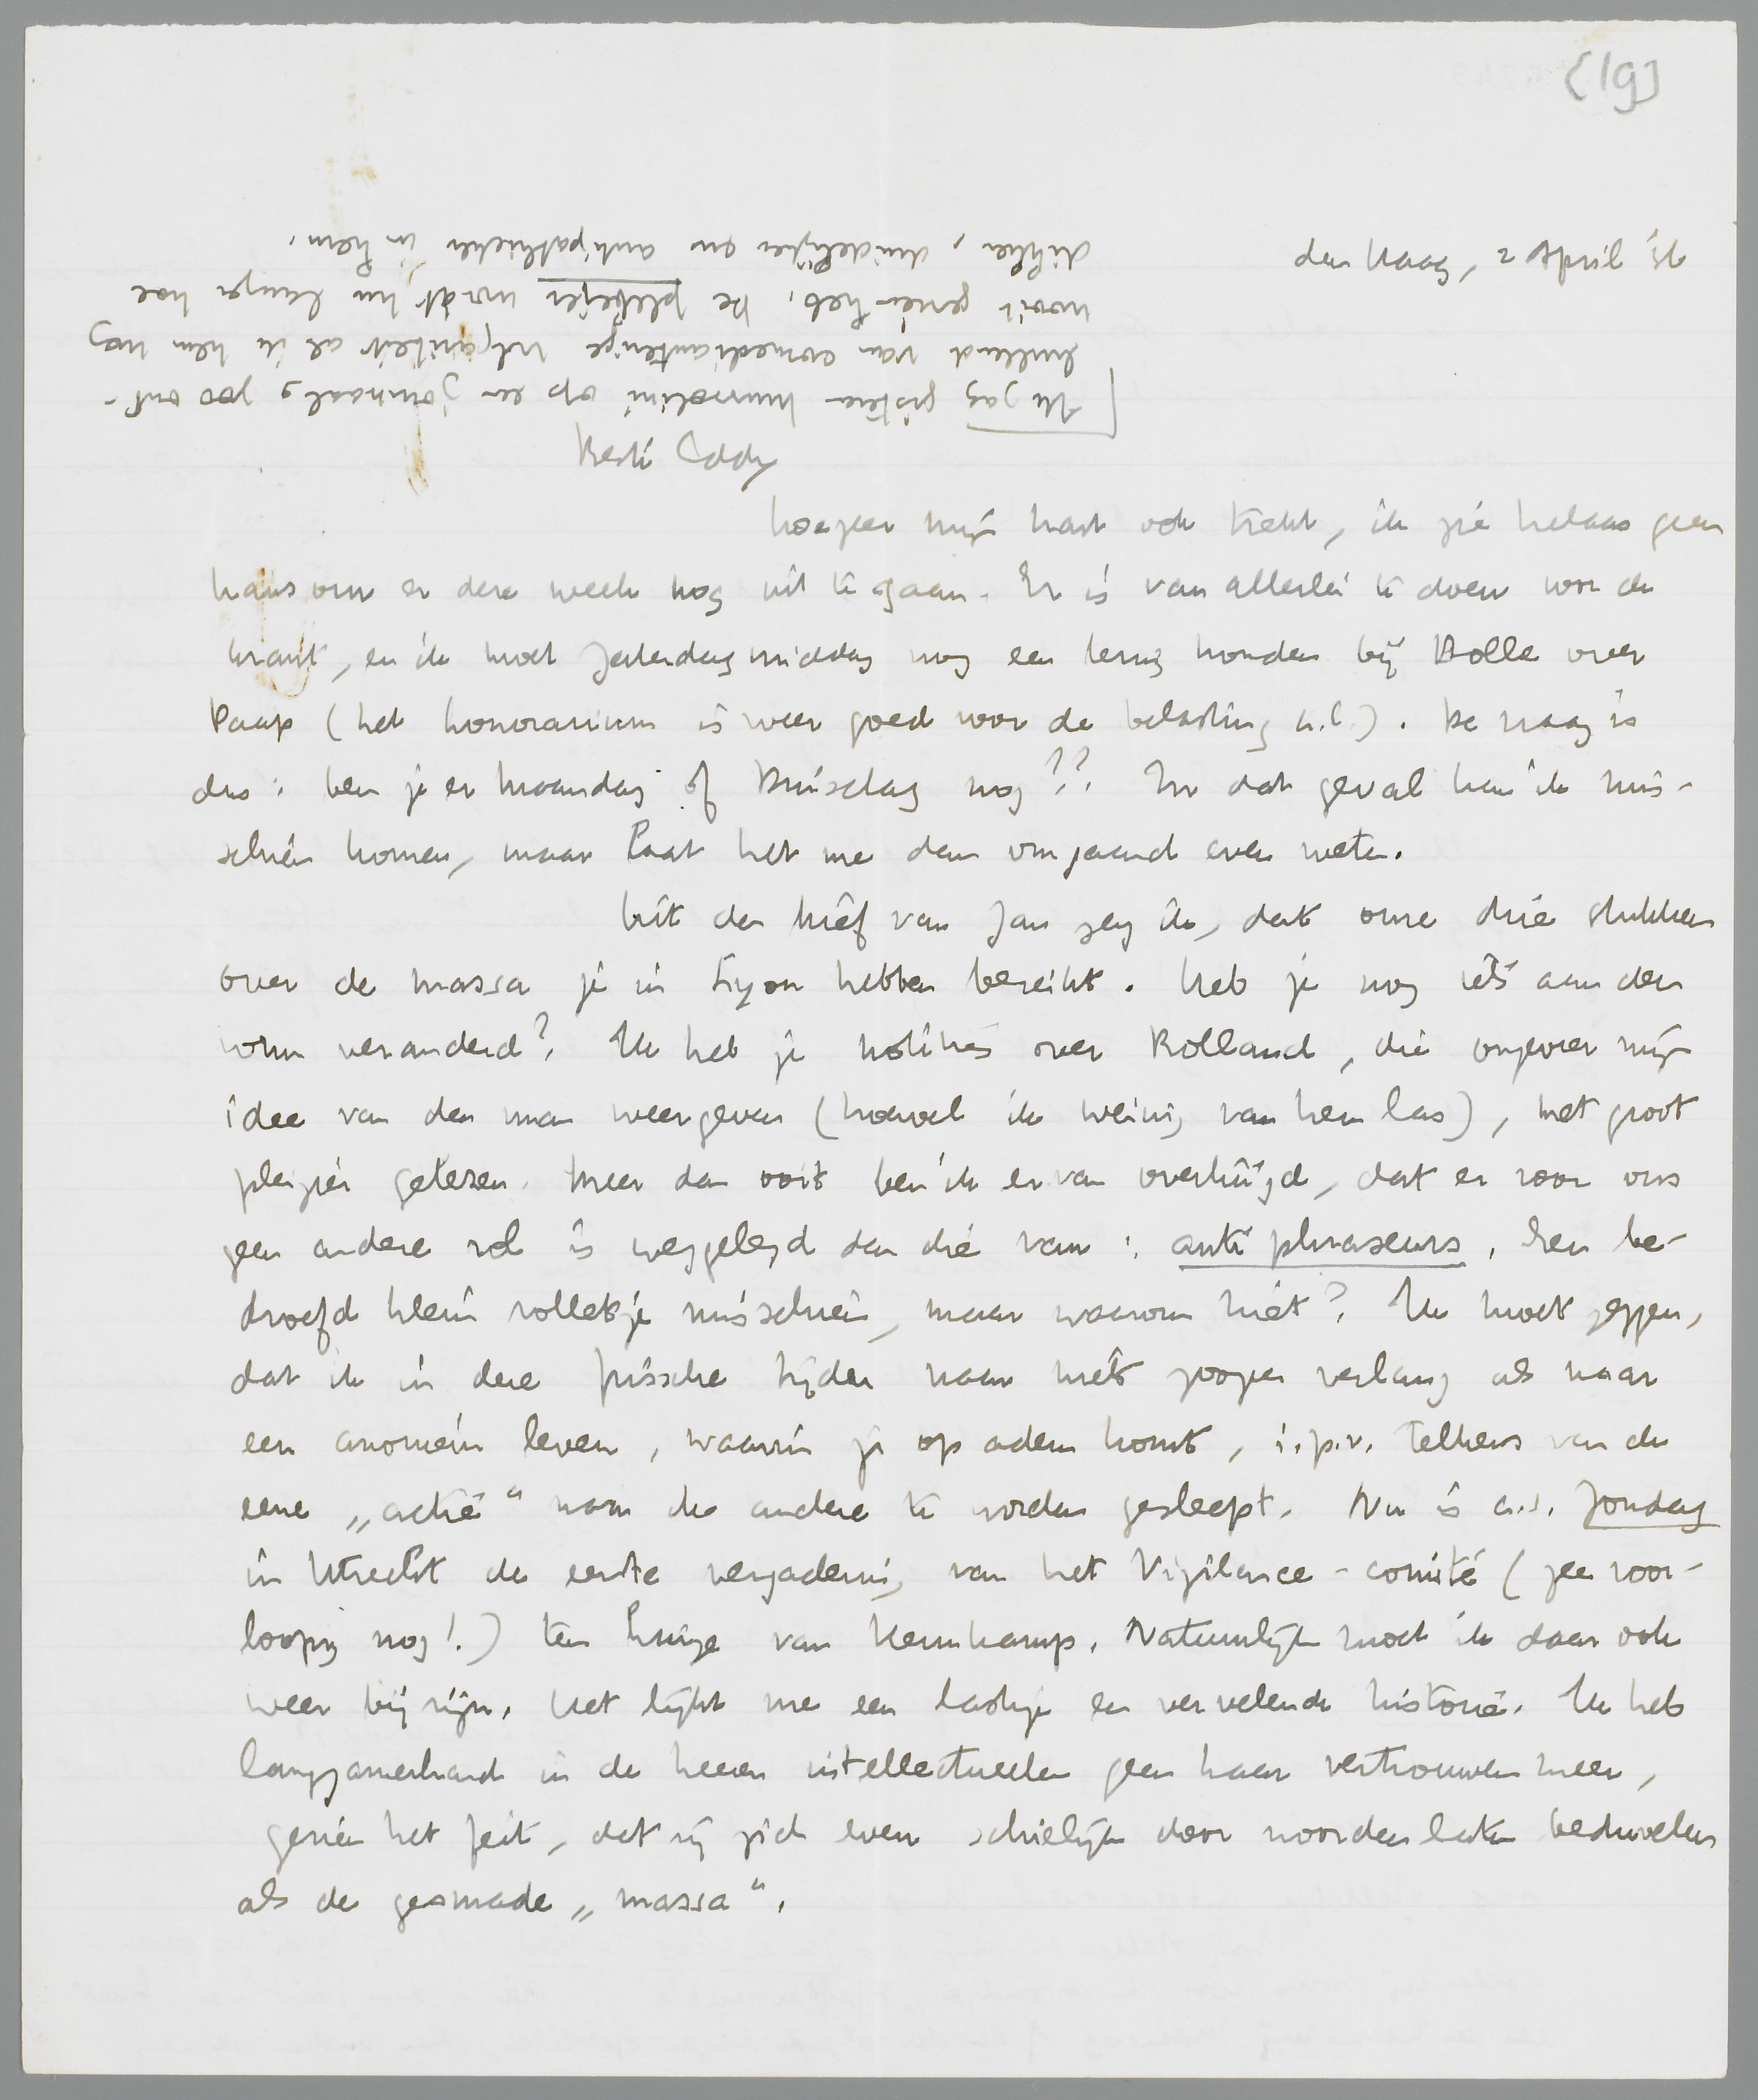 [19]
den Haag, 2 April '36
[Ik zag gisteren Mussolini op een journaal, zoo ont-
hullend van comediantenige vulgariteit als ik hem nog
nooit gezien heb. De plebejer wordt hu langer hoe
dikker, duidelijker en antipathieker in hem.
Beste Eddy
Hoezeer mijn hart ook trekt, ik zie helaas geen
kans om er deze week nog uit te gaan. Er is van allerlei te doen voor de
krant, en ik moet Zaterdagmiddag nog een lezing houden bij Bolle over
Paap (het honorarium is weer goed voor de belasting n.l.). De vraag is
dus: ben je er Maandag of Dinsdag nog?? In dat geval kan ik mis-
schien komen, maar laat het me dan omgaand even weten.
Uit den brief van Jan zag ik, dat onze drie stukken
over de massa je in Lyon hebben bereikt. Heb je nog iets aan den
vorm veranderd? Ik heb je notities over Rolland, die ongeveer mijn
idee van den man weergeven (hoewel ik weinig van hem las), met groot
plezier gelezen. Meer dan ooit ben ik ervan overtuigd, dat er voor ons
geen andere rol is weggelegd dan die van: anti phraseurs. Een be-
droefd klein rolletje misschien, maar waarom niet? Ik moet zeggen,
dat ik in deze frissche tijden naar niets zoozeer verlang als naar
een anoniem leven, waarin je op adem komt, i.p.v. telkens van de
eene „actie" naar de andere te worden gesleept. Nu is a.s. Zondag
in Utrecht de eerste vergadering van het Vigilance-comité (zeer voor-
loopig nog!) ten huize van Kernkamp. Natuurlijk moet ik daar ook
weer bij zijn. Het lijkt me een lastige en vervelende historie. Ik heb
langzamerhand in de heeren intellectueelen geen haar vertrouwen meer,
gezien het feit, dat zij zich even schielijk door woorden laten beduvelen
als de gesmade „massa".